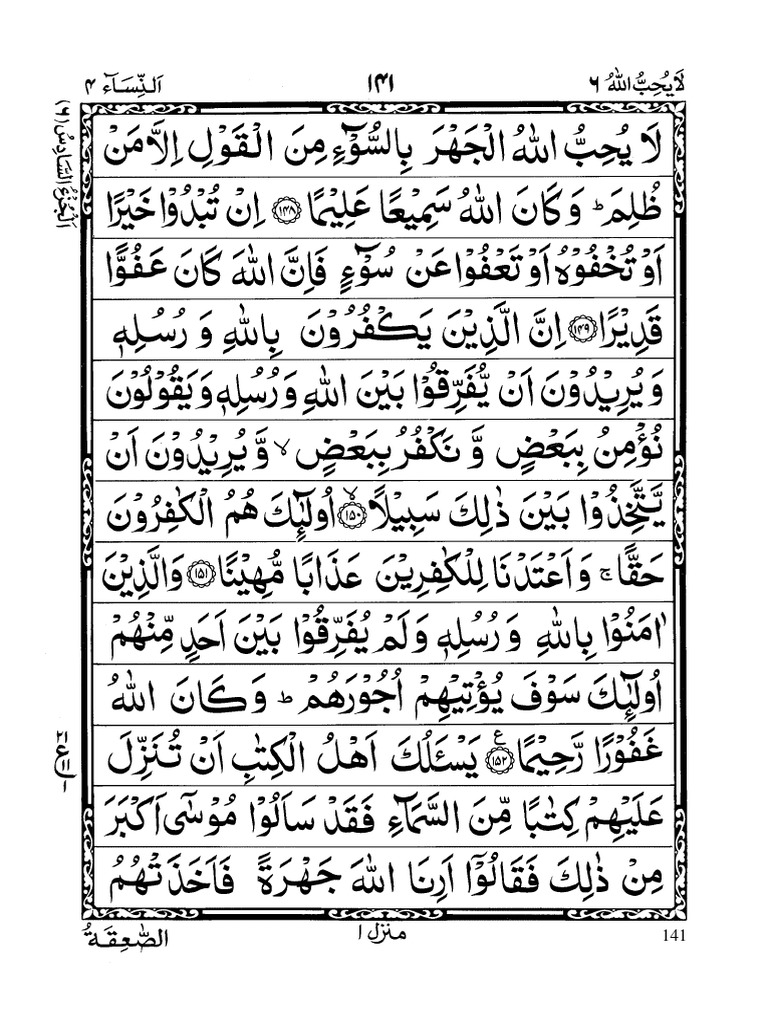 لَا يُحِبُّ اللهُ ٦ ١٤١ اَلنِّسَآء ٤
اَلْجُزْءُ السَّادِسُ (٦)
لَا يُحِبُّ اللهُ الْجَهْرَ بِالسُّوْٓءِ مِنَ الْقَوْلِ اِلَّا مَنْ
ظُلِمَ ؕ وَ كَانَ اللهُ سَمِيْعًا عَلِيْمًا ﴿۱۴۸﴾ اِنْ تُبْدُوْا خَيْرًا
اَوْ تُخْفُوْهُ اَوْ تَعْفُوْا عَنْ سُوْٓءٍ فَاِنَّ اللهَ كَانَ عَفُوًّا
قَدِيْرًا ﴿۱۴۹﴾ اِنَّ الَّذِيْنَ يَكْفُرُوْنَ بِاللهِ وَ رُسُلِهٖ
وَ يُرِيْدُوْنَ اَنْ يُّفَرِّقُوْا بَيْنَ اللهِ وَ رُسُلِهٖ وَ يَقُوْلُوْنَ
نُؤْمِنُ بِبَعْضٍ وَّ نَكْفُرُ بِبَعْضٍ ۙ وَّ يُرِيْدُوْنَ اَنْ
يَّتَّخِذُوْا بَيْنَ ذٰلِكَ سَبِيْلًا ﴿۱۵۰﴾ۙ اُولٰٓئِكَ هُمُ الْكٰفِرُوْنَ
حَقًّا ۚ وَ اَعْتَدْنَا لِلْكٰفِرِيْنَ عَذَابًا مُّهِيْنًا ﴿۱۵۱﴾ وَالَّذِيْنَ
اٰمَنُوْا بِاللهِ وَ رُسُلِهٖ وَ لَمْ يُفَرِّقُوْا بَيْنَ اَحَدٍ مِّنْهُمْ
اُولٰٓئِكَ سَوْفَ يُؤْتِيْهِمْ اُجُوْرَهُمْ ؕ وَ كَانَ اللهُ
غَفُوْرًا رَّحِيْمًا ﴿۱۵۲﴾ع يَسْـَٔلُكَ اَهْلُ الْكِتٰبِ اَنْ تُنَزِّلَ
عَلَيْهِمْ كِتٰبًا مِّنَ السَّمَآءِ فَقَدْ سَاَلُوْا مُوْسٰٓى اَكْبَرَ
مِنْ ذٰلِكَ فَقَالُوْٓا اَرِنَا اللهَ جَهْرَةً فَاَخَذَتْهُمُ
141 منزل ١ الصّٰعِقَةُ